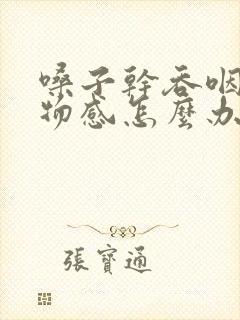 嗓子幹吞咽
物感怎麼办
張寶通